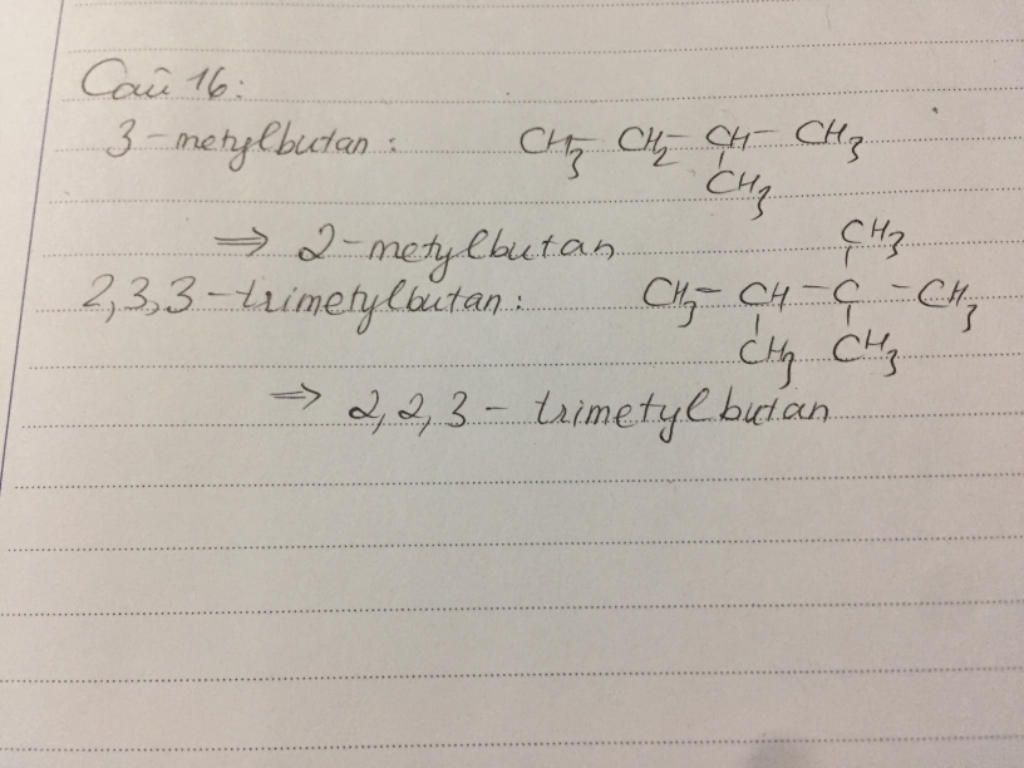 Câu 16:
3-metylbutan: CH3-CH2-CH-CH3
CH3
⇒ 2-metylbutan
CH3
2,3,3-trimetylbutan: CH3-CH-C-CH3
CH3 CH3
⇒ 2,2,3-trimetylbutan